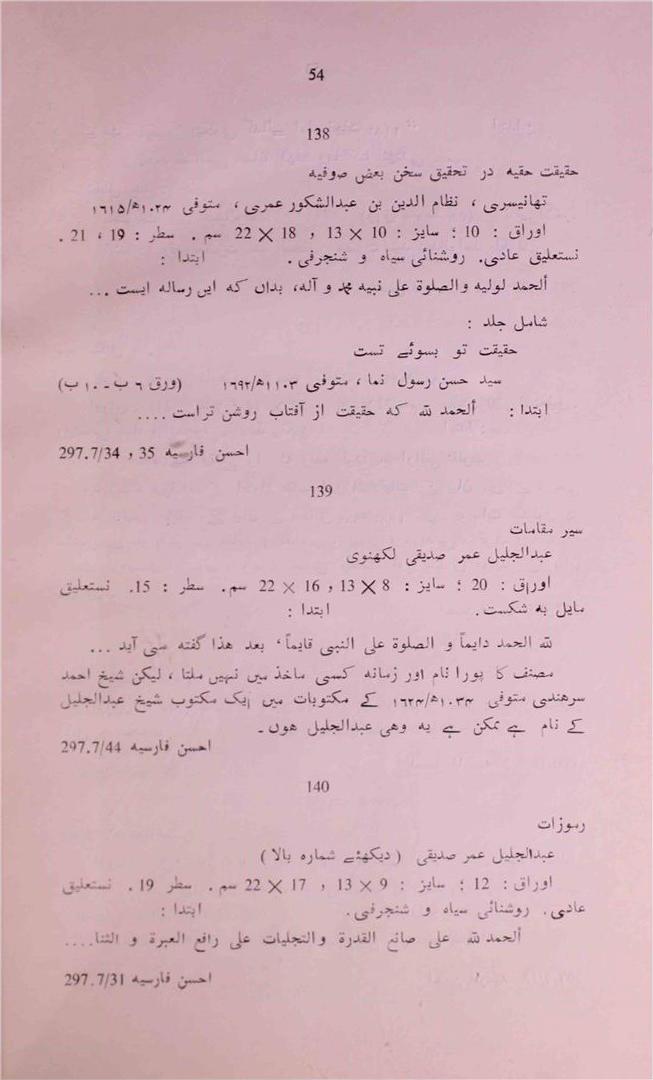 54
138
حقیقت حقیه در تحقیق سخن بعض صوفیه
تھانیسری ، نظام الدین بن عبدالشکور عمری ، متوفی ۱۰۲۴ھ/۱۶۱۵
اوراق : 10 ؛ سایز : 10 × 13 و 18 × 22 سم . سطر : 19 ، 21 .
نستعلیق عادی. روشنائی سیاہ و شنجرفی . ابتدا :
ألحمد لولیه والصلوة علی نبیه محمد و آله، بدان که این رساله ایست ...
شامل جلد :
حقیقت تو بسوئے تست
سید حسن رسول نما ، متوفی ۱۱۰۳ھ/۱۶۹۲ (ورق ٦ ب ـ ۱۰ ب)
ابتدا : ألحمد لله که حقیقت از آفتاب روشن تر است ....
احسن فارسیه 35 و 297.7/34
139
سیر مقامات
عبدالجلیل عمر صدیقی لکھنوی
اوراق : 20 ؛ سایز : 8 × 13 و 16 × 22 سم . سطر : 15. نستعلیق
مایل به شکست . ابتدا :
لله الحمد دایماً و الصلوة علی النبی قایماً ، بعد هذا گفته می آید ...
مصنف کا پورا نام اور زمانه کسی ماخذ میں نہیں ملتا ، لیکن شیخ احمد
سرهندی متوفی ۱۰۳۴ھ/۱۶۲۴ کے مکتوبات میں ایک مکتوب شیخ عبدالجلیل
کے نام ہے ممکن ہے یه وهی عبدالجلیل هوں ـ
احسن فارسیه 297.7/44
140
رموزات
عبدالجلیل عمر صدیقی ( دیکھئے شمارہ بالا )
اوراق : 12 ؛ سایز : 9 × 13 و 17 × 22 سم . سطر 19 . نستعلیق
عادی . روشنائی سیاہ و شنجرفی . ابتدا :
ألحمد لله علی صانع القدرة والتجلیات علی رافع العبرة و الثنا....
احسن فارسیه 297.7/31